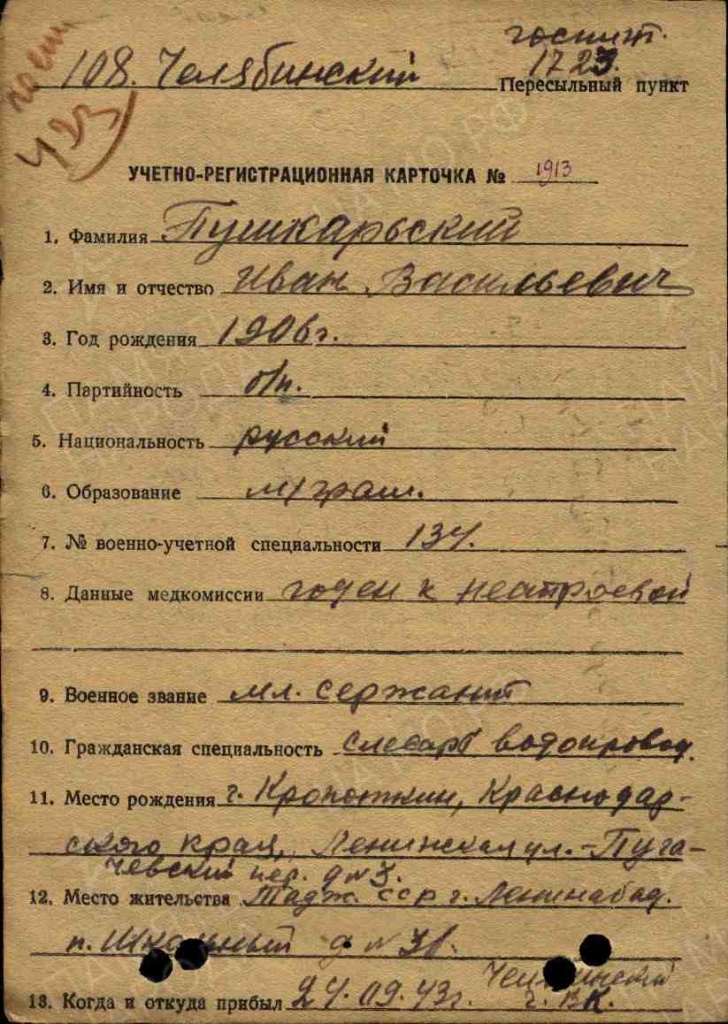 госпит.
1723.
госп
423
108. Челябинский Пересыльный пункт
УЧЕТНО-РЕГИСТРАЦИОННАЯ КАРТОЧКА № 1913
1. Фамилия Пушкарьский
2. Имя и отчество Иван Васильевич
3. Год рождения 1906 г.
4. Партийность б/п.
5. Национальность русский
6. Образование м/грам.
7. № военно-учетной специальности 134.
8. Данные медкомиссии годен к нестроевой
9. Военное звание мл. сержант
10. Гражданская специальность слесарь водопровод.
11. Место рождения г. Кропоткин, Краснодар-
ского края, Ленинская ул.-Пуга-
чевский пер. д № 3.
12. Место жительства Тадж. ССР г. Ленинабад.
п. Школьный д №
13. Когда и откуда прибыл 24.09.43г. Челябинский
г. ВК.